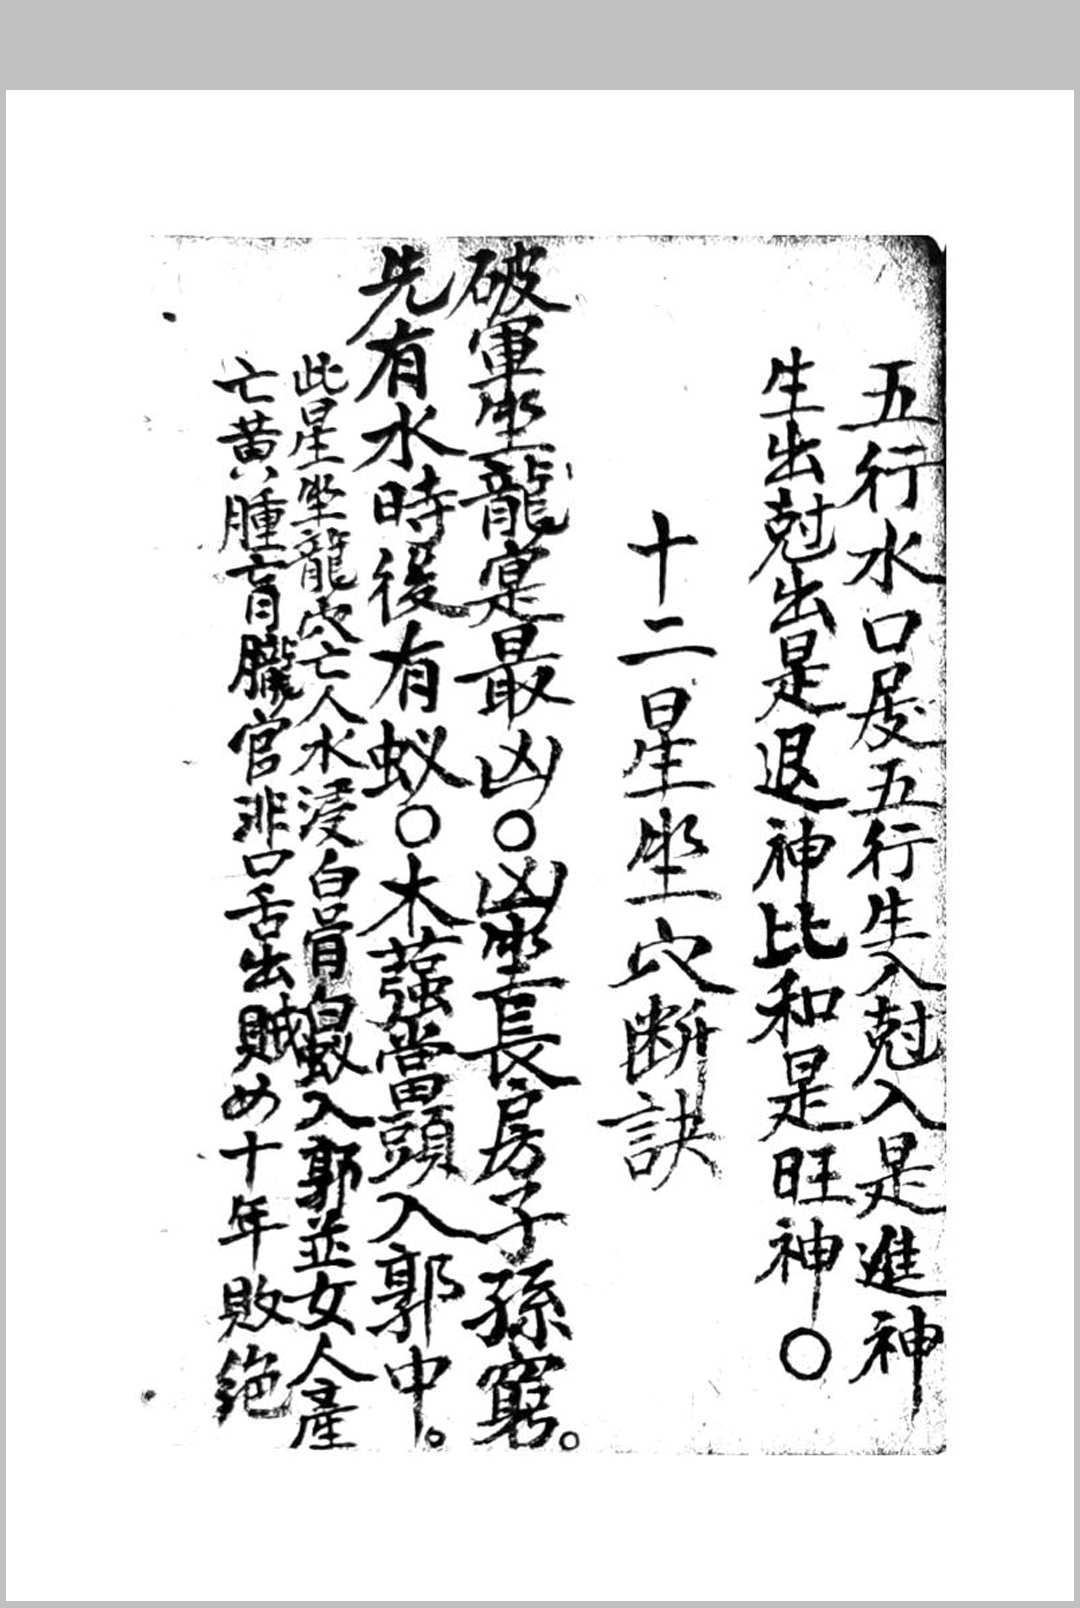 五行水口居五行生入尅入是進神
生出尅出是退神比和是旺神〇
十二星坐穴断訣
破軍坐龍寔最凶〇凶坐長房子孫窮。
先有水時後有蚁〇木蕦當頭入郭中。
此星坐龍穴亡人水浸白骨白蚁入郭並女人產
亡黃腫盲朧官非口舌出賊め十年敗絶